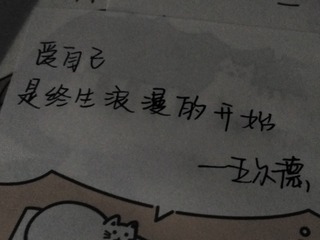 爱自己
是终生浪漫的开始
——王尔德,